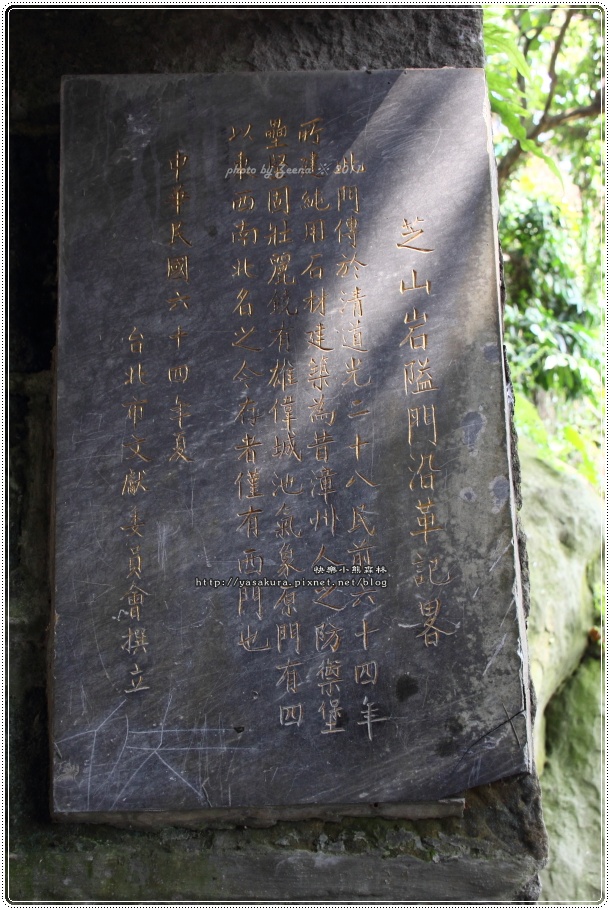 芝山岩隘門沿革記畧
此門傳於清道光二十八民前六十四年
所建純用石材建築為昔漳州人之防禦堡
壘堅固壯麗饒有雄偉城池氣象原門有四
以東西南北名之今存者僅有西門也
中華民國六十四年夏
台北市文獻委員會撰立
photo by Zeena ※ 2011
快樂小熊森林
http://yasakura.pixnet.net/blog